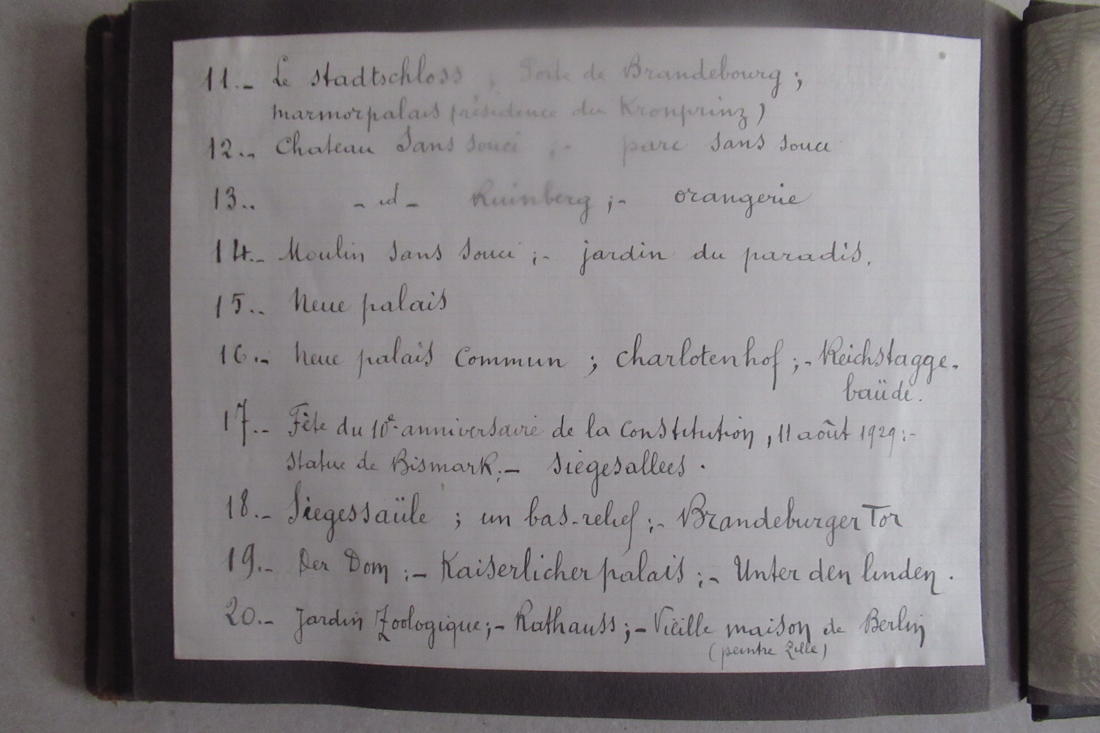 11.- Le Stadtschloss ; Porte de Brandebourg ;
marmorpalais présidence du Kronprinz)
12.. Chateau Sans Souci ;- parc Sans Souci
13.. - id - Ruinberg ;- orangerie
14.- Moulin Sans Souci ;- jardin du paradis.
15.. Neue palais
16.- Neue palais Commun ; Charlotenhof ;- Reichstagge-
baüde.
17.- Fête du 10e anniversaire de la Constitution, 11 août 1929 :-
Statue de Bismark ;- Siegesallees .
18.- Siegessaüle ; un bas-relief ;- Brandeburger Tor
19.- Der Dom ;- Kaiserlicher palais ;- Unter den linden .
20.- Jardin Zoologique ;- Rathauss ;- Vieille maison de Berlin
(peintre Zille)